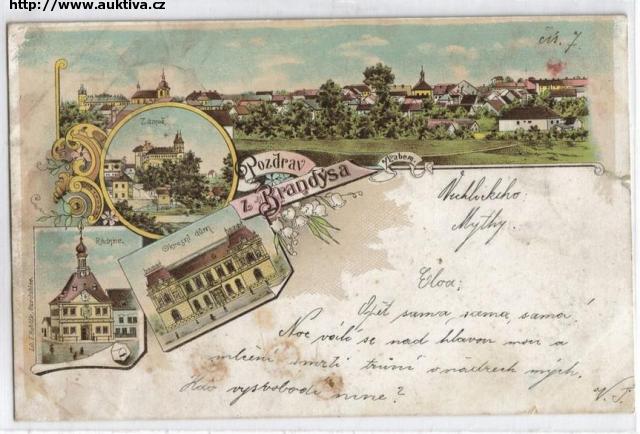 http://www.auktiva.cz
čís. 7
Zámek.
Pozdrav
z Brandýsa
n/Labem.
Radnice.
Okresní dům.
Vrchlického:
Mythy.
Eloa:
Opět sama, sama, sama!
Noc válí se nad hlavou mou a
mlčení smrti trůní o ňadrech mých.
Kdo vysvobodí mne?